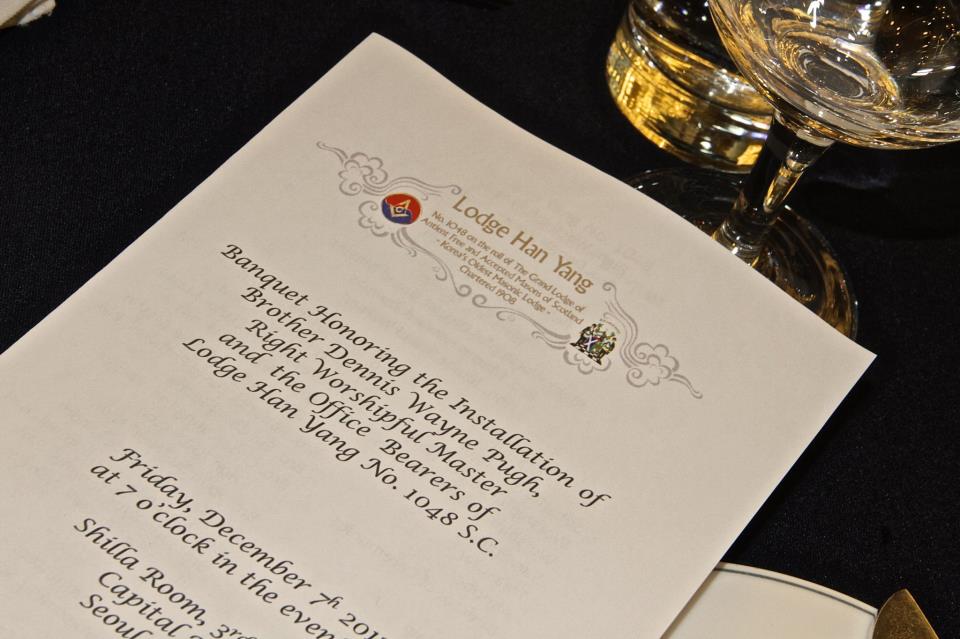 Lodge Han Yang
No. 1048 on the roll of The Grand Lodge of
Antient Free and Accepted Masons of Scotland
- Korea's Oldest Masonic Lodge -
Chartered 1908
Banquet Honoring the Installation of
Brother Dennis Wayne Pugh,
Right Worshipful Master
and the Office Bearers of
Lodge Han Yang No. 1048 S.C.
Friday, December 7th
at 7 o'clock in the
Shilla Room, 3rd
Capital
Seoul